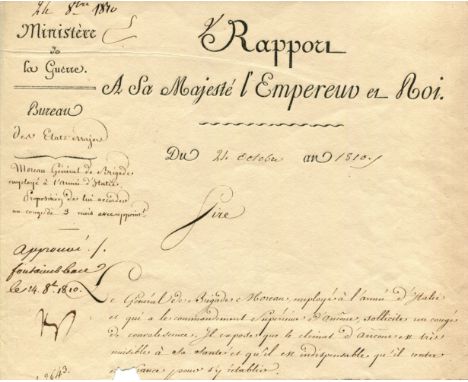 24 8bre 1810
Ministère
de
la Guerre.
Bureau
des Etats-major
Moreau Général de Brigade
employé à l'armée d'Italie
Proposition de lui accorder
un congé de 3 mois avec appoint.ts
Approuvé
fontainebleau
le 24. 8bre 1810.
Np
2643.
Rapport
A Sa Majesté l'Empereur et Roi.
Du 24 octobre an 1810
Sire
Le Général de Brigade Moreau, employé à l'armée d'Italie
et qui a le commandement Supérieur d'Ancône, sollicite un congé
de convalescence. Il expose que le climat d'Ancône est très
nuisible à sa santé et qu'il est indispensable qu'il rentre
en france pour s'y rétablir.